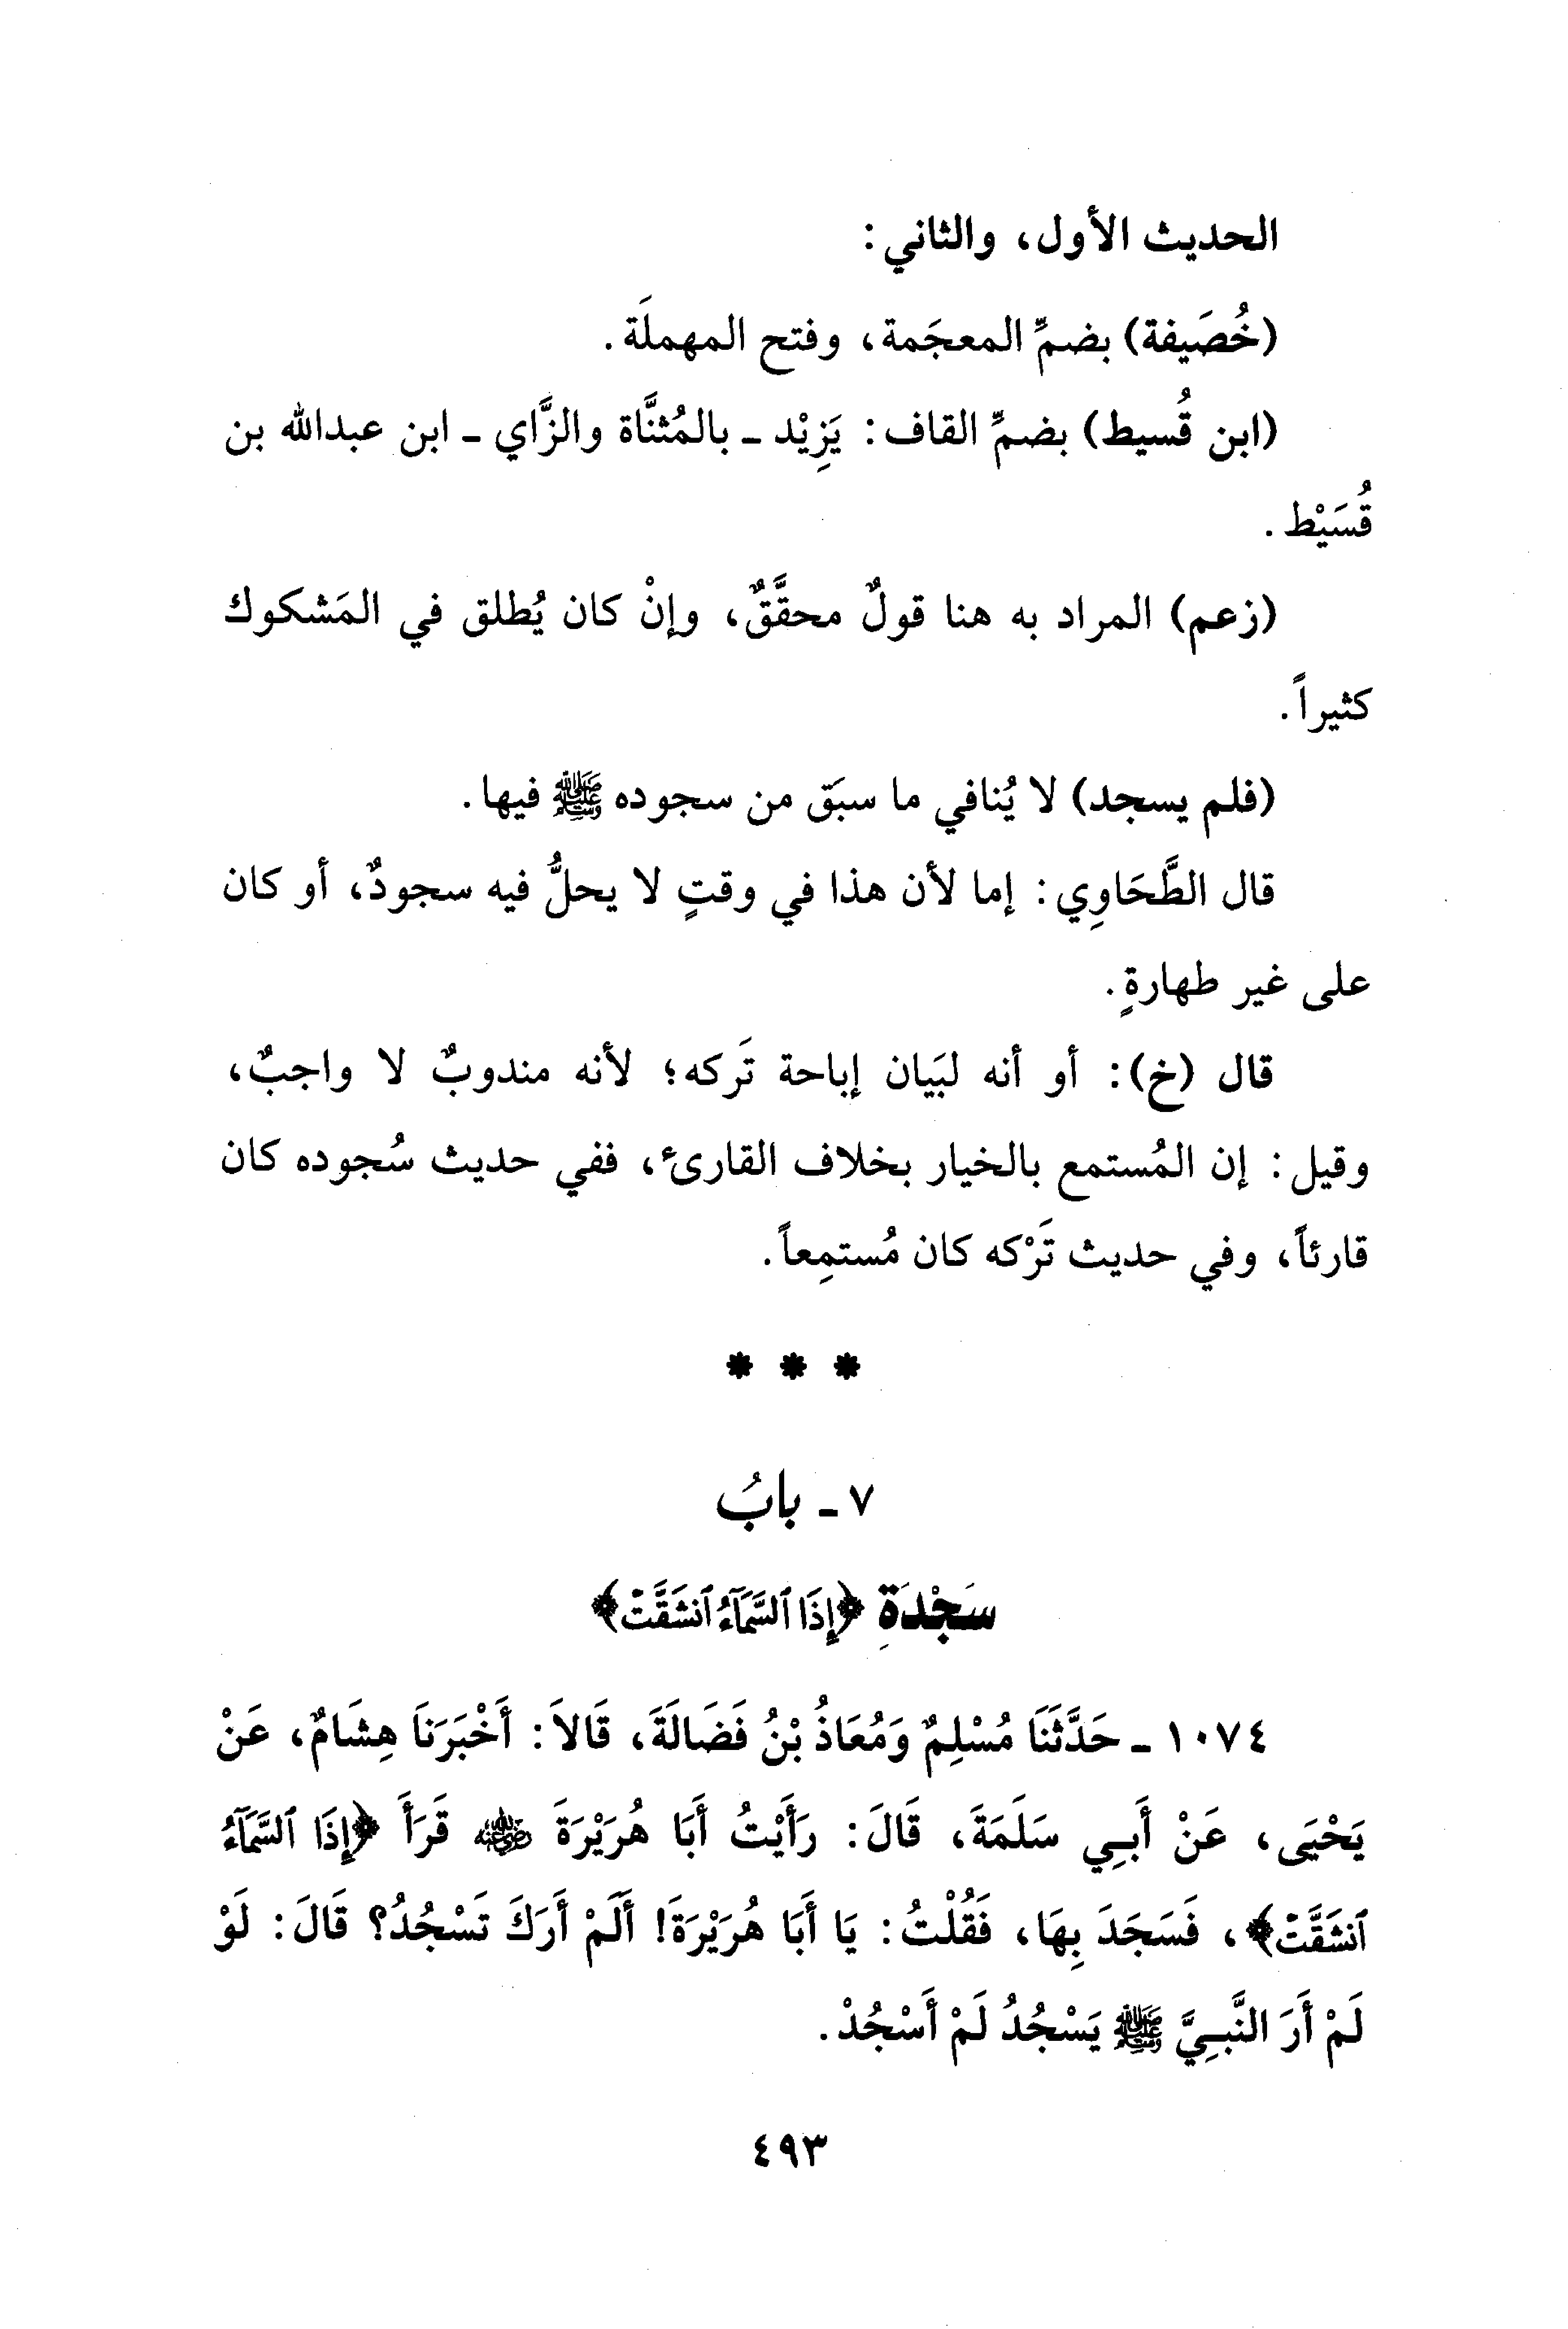 الحديث الأول، والثاني:
(خُصَيفة) بضمِّ المعجَمة، وفتح المهملَة.
(ابن قُسيط) بضمِّ القاف: يَزِيْد ـ بالمُثنَّاة والزَّاي ـ ابن عبدالله بن
قُسَيْط.
(زعم) المراد به هنا قولٌ محقَّقٌ، وإنْ كان يُطلق في المَشكوك
كثيراً.
(فلم يسجد) لا يُنافي ما سبَق من سجوده ﷺ فيها.
قال الطَّحَاوِي: إما لأن هذا في وقتٍ لا يحلُّ فيه سجودٌ، أو كان
على غير طهارةٍ.
قال (خ): أو أنه لبَيان إباحة تَركه؛ لأنه مندوبٌ لا واجبٌ،
وقيل: إن المُستمع بالخيار بخلاف القارئ، ففي حديث سُجوده كان
قارئاً، وفي حديث تَرْكه كان مُستمِعاً.
* * *
٧ ـ بابُ
سَجْدَةِ ﴿إِذَا ٱلسَّمَآءُ ٱنشَقَّتْ﴾
١٠٧٤ ـ حَدَّثَنَا مُسْلِمٌ وَمُعَاذُ بْنُ فَضَالَةَ، قَالاَ: أَخْبَرَناَ هِشَامٌ، عَنْ
يَحْيَى، عَنْ أَبِي سَلَمَةَ، قَالَ: رَأَيْتُ أَبَا هُرَيْرَةَ رضي الله عنه قَرَأَ ﴿إِذَا ٱلسَّمَآءُ
ٱنشَقَّتْ﴾، فَسَجَدَ بِهَا، فَقُلْتُ: يَا أَبَا هُرَيْرَةَ! أَلَمْ أَرَكَ تَسْجُدُ؟ قَالَ: لَوْ
لَمْ أَرَ النَّبِيَّ ﷺ يَسْجُدُ لَمْ أَسْجُدْ.
٤٩٣